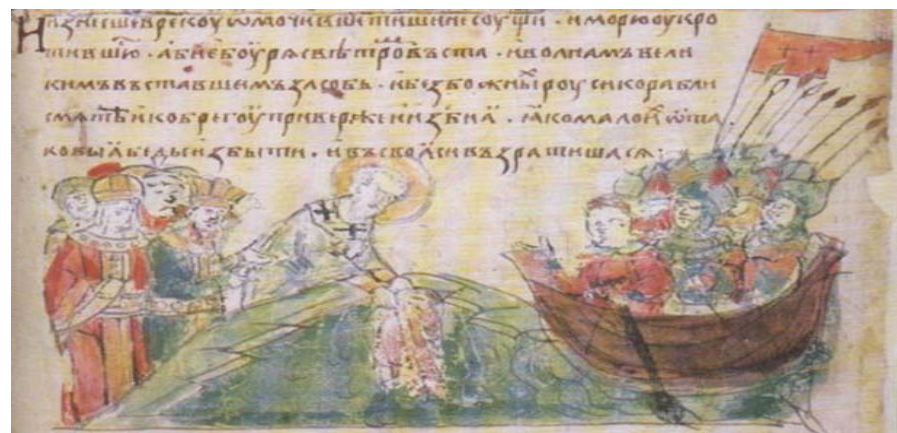 Низнесшевреку омочивши тишинесоущи · иморюоукро
тившюсѧ · абиебоурѧсвѣтромъвъста · иволнамъвели
кимъвъставшемъзасобь · ибезбожныхроусикорабли
смѧтеикоберегоупривержеиизбиꙗ · ꙗкомалоихѿта
ковыꙗбедыизбыти · ивъсвоꙗсивъзратишасѧ·